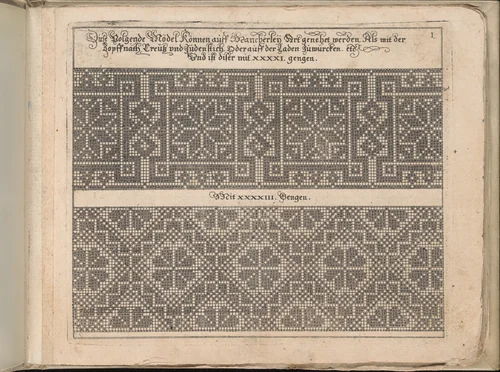 Dise Folgende Model Konnen auff Mancherley Art genehet werden. Als mit der
Zopff nach, Creütz vnd Judenstich, Oder auff der Laden Zuwurcken. etc.
Vnd ist diser mit XXXXI. gengen.
1.
Mit XXXXIII. Gengen.